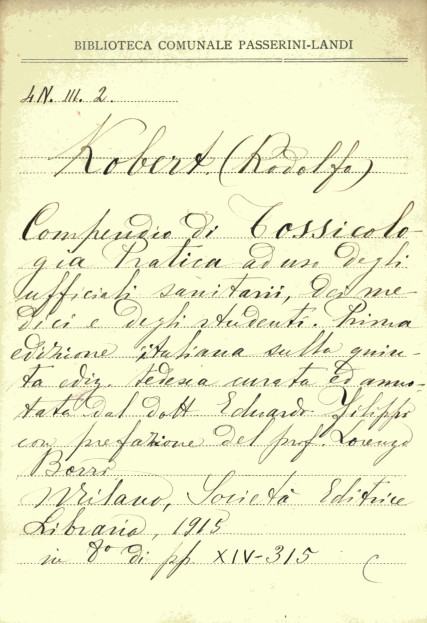 BIBLIOTECA COMUNALE PASSERINI-LANDI
4N. III. 2.
Kobert. (Rodolfo)
Compendio di Tossicolo-
gia Pratica ad uso degli
ufficiali sanitarii, dei me-
dici e degli studenti. Prima
edizione italiana sulla quin-
ta ediz. tedesca curata ed anno-
tata dal dott Eduardo Filippi
con prefazione del prof. Lorenzo
Borri
Milano, Società Editrice
Libraria, 1915
in 8º di pp XIV-315